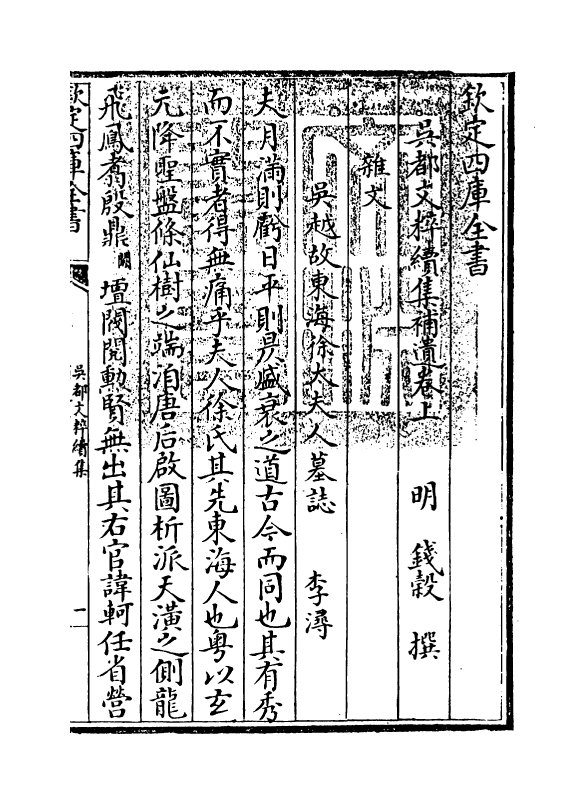 欽定四庫全書
吳都文粹續集補遺卷上
明 錢穀 撰
雜文
吳越故東海徐太夫人墓誌 李潯
夫月滿則虧日平則昃盛衰之道古今而同也其有秀
而不實者得無痛乎夫人徐氏其先東海人也粵以玄
元降聖盤條仙樹之端洎唐后啟圖析派天潢之側龍
飛鳳翥殷鼎闕壇閥閱勳賢無出其右官諱軻任省營
欽定四庫全書
吳都文粹續集